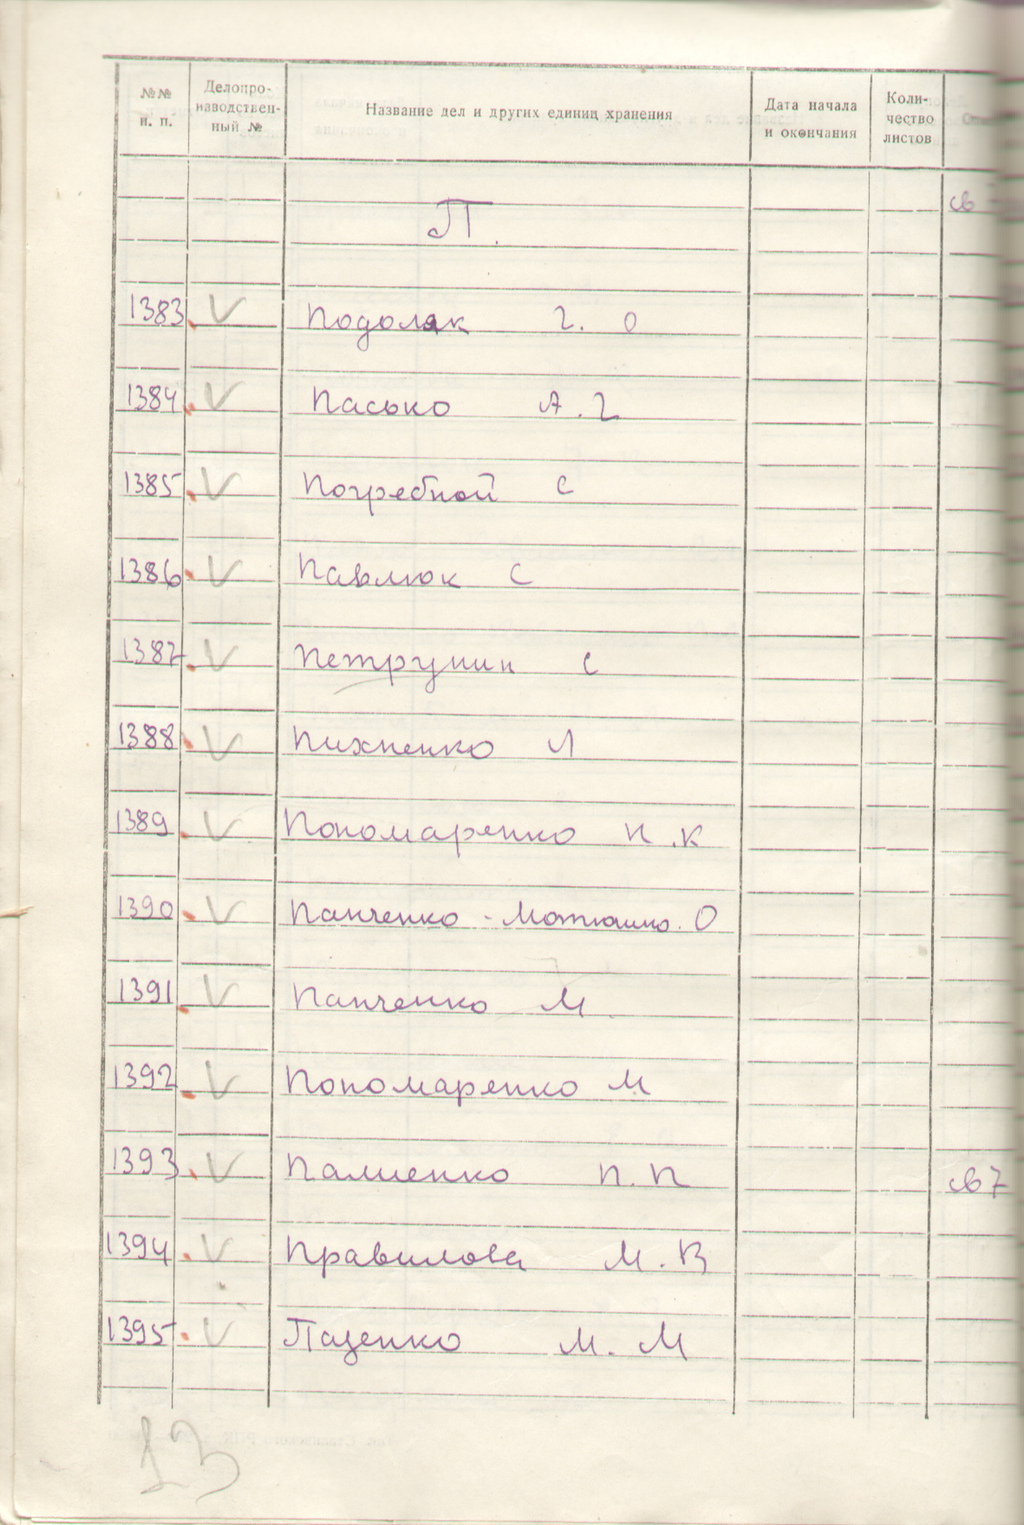 №№ н. п. Делопро-изводствен-ный № Название дел и других единиц хранения Дата начала и окончания Коли-чество листов
П.
1383 V Подоляк Г. О
1384 V Пасько А. Г
1385 V Погребной С
1386 V Павлюк С
1387 V Петрунин С
1388 V Пихненко Л
1389 V Пономаренко П. К
1390 V Панченко - Матюшко. О
1391 V Панченко М
1392 V Пономаренко М
1393 V Палиенко П. П св 7
1394 V Правилова М. В
1395 V Паценко М. М
13